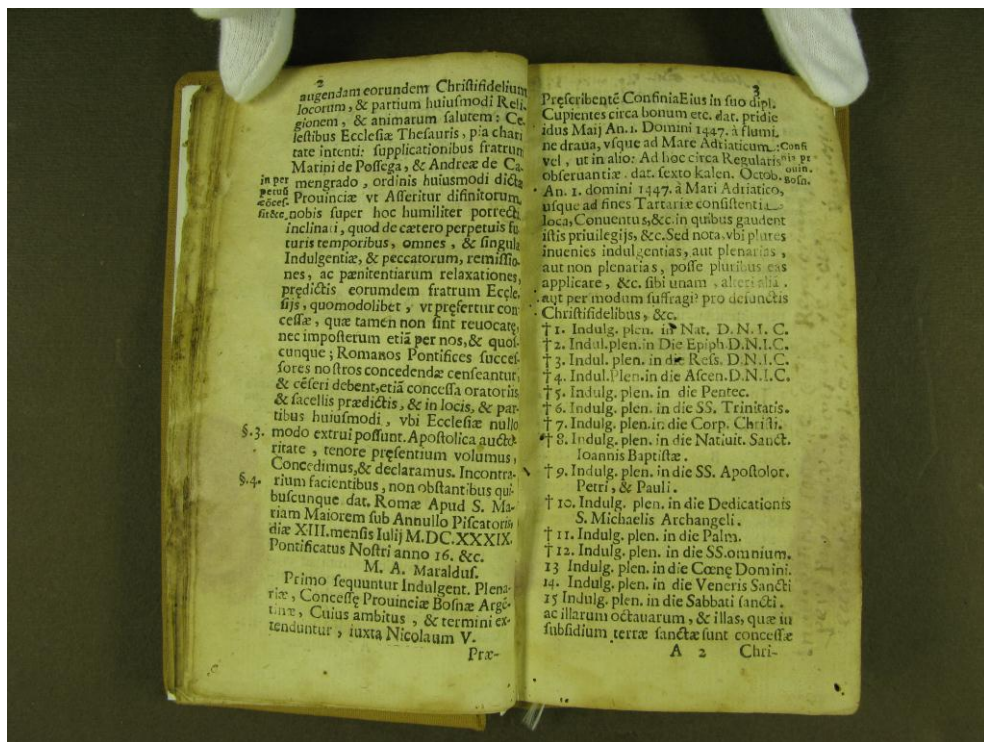 2
augendam eorundem Chriſtifidelium
locorum, & partium huiuſmodi Reli-
gionem, & animarum ſalutem: Ce-
leſtibus Eccleſiæ Theſauris, pia chari
tate intenti: ſupplicationibus fratrum
Marini de Poſſega, & Andreæ de Ca-
mengrado, ordinis huiuſmodi dictæ
Prouinciæ vt Aſſeritur difinitorum,
in per
petuū
cōceſ.
ſit &c.
nobis ſuper hoc humiliter porrectis
inclinati, quod de cætero perpetuis fu
turis temporibus, omnes, & ſingulæ
Indulgentiæ, & peccatorum, remiſſio-
nes, ac pænitentiarum relaxationes,
prędictis eorumdem fratrum Eccle,
ſijs, quomodolibet, vt pręfertur con
ceſſæ, quæ tamen non ſint reuocatę,
nec impoſterum etiā per nos, & quoſ-
cunque; Romanos Pontifices ſucceſ-
ſores noſtros concedendæ cenſeantur,
& cēſeri debent, etiā conceſſa oratoriis
& ſacellis prædictis, & in locis, & par-
tibus huiuſmodi, vbi Eccleſiæ nullo
§.3. modo extrui poſſunt. Apoſtolica aucto-
ritate, tenore pręſentium volumus,
Concedimus, & declaramus. Incontra-
§.4. rium facientibus, non obſtantibus qui-
buſcunque dat. Romæ Apud S. Ma-
riam Maiorem ſub Annullo Piſcatoris
diæ XIII. menſis Iulij M.DC.XXXIX.
Pontificatus Noſtri anno 16. &c.
M. A. Maralduſ.
Primo ſequuntur Indulgent. Plena-
riæ, Conceſſę Prouinciæ Boſnæ Argē-
tinæ, Cuius ambitus, & termini ex-
tenduntur, iuxta Nicolaum V.
Præ-
3
Pręſcribentē Confinia Eius in ſuo dipl.
Cupientes circa bonum etc. dat. pridie
idus Maij An. 1. Domini 1447. à flumi.
ne draua, vſque ad Mare Adriaticum.
vel, ut in alio: Ad hoc circa Regularis
obſeruantiæ. dat. ſexto kalen. Octob.
:Confi
nis pr
ouin.
Boſn.
An. 1. domini 1447. à Mari Adriatico,
uſque ad fines Tartariæ conſiſtentia
loca, Conuentus, &c. in quibus gaudent
iſtis priuilegijs, &c. Sed nota, vbi plures
inuenies indulgentias, aut plenarias,
aut non plenarias, poſſe pluribus eas
applicare, &c. ſibi unam, alteri alia.
aut per modum ſuffragi? pro defunctis
Chriſtifidelibus, &c.
†1. Indulg. plen. in Nat. D.N.I.C.
†2. Indul. plen. in Die Epiph D.N.I C.
†3. Indul. plen. in die Reſs. D.N.I.C.
†4. Indul. Plen. in die Aſcen. D.N.I.C.
†5. Indulg. plen. in die Pentec.
†6. Indulg. plen. in die SS. Trinitatis.
†7. Indulg. plen. in die Corp. Chriſti.
†8. Indulg. plen. in die Natiuit. Sanct.
Ioannis Baptiſtæ.
†9. Indulg. plen. in die SS. Apoſtolor.
Petri, & Pauli.
†10. Indulg. plen. in die Dedicationis
S. Michaelis Archangeli.
†11. Indulg. plen. in die Palm.
†12. Indulg. plen. in die SS. omnium.
13 Indulg. plen. in die Cœnę Domini.
14. Indulg. plen. in die Veneris Sancti
15 Indulg. plen. in die Sabbati ſancti.
ac illarum octauarum, & illas, quæ in
ſubſidium terræ ſanctæ ſunt conceſſæ
A 2 Chri-